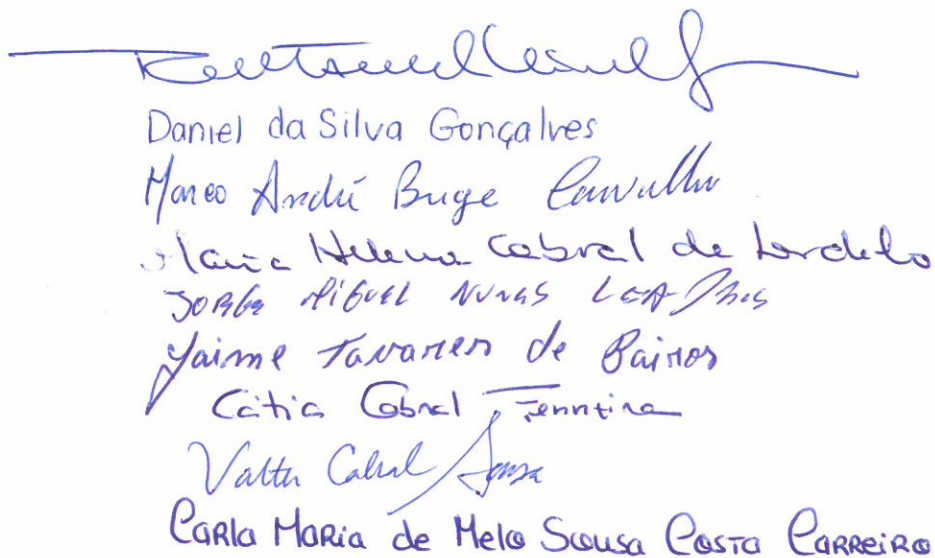 Daniel da Silva Gonçalves
Marco André Buge Carvalho
Maria Helena Cabral de
Jorge Miguel Nunes
Jaime Tavares de Bairos
Cátia Cabral Ferreira
Valter Cabral Sousa
Carla Maria de Melo Sousa Costa Carreiro